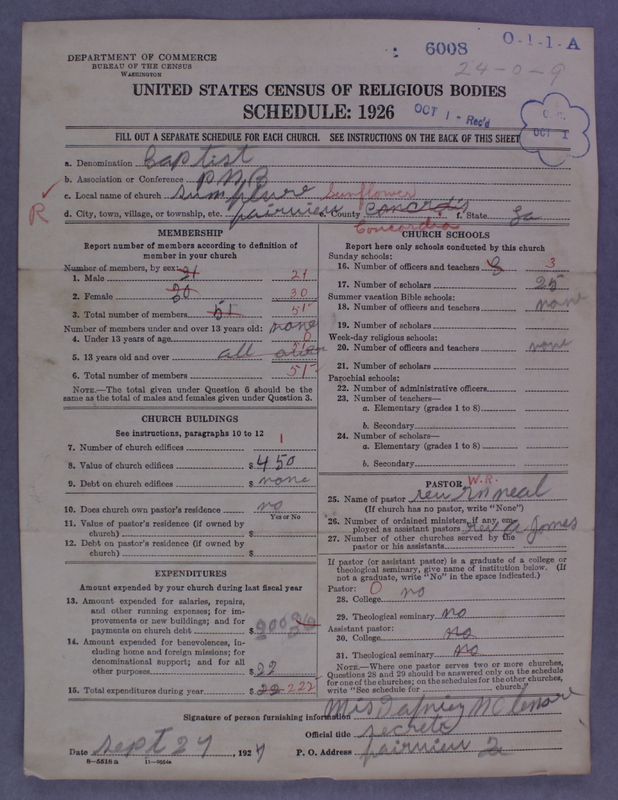 6008
O-1-1-A
24-0-9
DEPARTMENT OF COMMERCE
BUREAU OF THE CENSUS
WASHINGTON
UNITED STATES CENSUS OF RELIGIOUS BODIES
SCHEDULE: 1926
OCT 1 - Rec'd
OCT 1
FILL OUT A SEPARATE SCHEDULE FOR EACH CHURCH. SEE INSTRUCTIONS ON THE BACK OF THIS SHEET
a. Denomination Baptist
b. Association or Conference
c. Local name of church Sunflower
R
d. City, town, village, or township, etc. fairview e. County Concordia f. State. La
MEMBERSHIP
Report number of members according to definition of
member in your church
Number of members, by sex:
1. Male 21 21
2. Female 30 30
3. Total number of members 51 51
Number of members under and over 13 years old: none
4. Under 13 years of age 0
5. 13 years old and over all
6. Total number of members 51
NOTE.—The total given under Question 6 should be the
same as the total of males and females given under Question 3.
CHURCH BUILDINGS
See instructions, paragraphs 10 to 12
7. Number of church edifices 1
8. Value of church edifices $450
9. Debt on church edifices $none
10. Does church own pastor's residence no
Yes or No
11. Value of pastor's residence (if owned by
church) $
12. Debt on pastor's residence (if owned by
church) $
EXPENDITURES
Amount expended by your church during last fiscal year
13. Amount expended for salaries, repairs,
and other running expenses; for im-
provements or new buildings; and for
payments on church debt $
14. Amount expended for benevolences, in-
cluding home and foreign missions; for
denominational support; and for all
other purposes $22
15. Total expenditures during year $22 222
CHURCH SCHOOLS
Report here only schools conducted by this church
Sunday schools:
16. Number of officers and teachers 3
17. Number of scholars 25
Summer vacation Bible schools:
18. Number of officers and teachers none
19. Number of scholars
Week-day religious schools:
20. Number of officers and teachers none
21. Number of scholars
Parochial schools:
22. Number of administrative officers
23. Number of teachers—
a. Elementary (grades 1 to 8)
b. Secondary
24. Number of scholars—
a. Elementary (grades 1 to 8)
b. Secondary
PASTOR W.R.
25. Name of pastor neal
(If church has no pastor, write "None")
26. Number of ordained ministers, if any, em-
ployed as assistant pastors Jones
27. Number of other churches served by the
pastor or his assistants
If pastor (or assistant pastor) is a graduate of a college or
theological seminary, give name of institution below. (If
not a graduate, write "No" in the space indicated.)
Pastor: 0
28. College no
29. Theological seminary no
Assistant pastor:
30. College no
31. Theological seminary no
NOTE.—Where one pastor serves two or more churches,
Questions 28 and 29 should be answered only on the schedule
for one of the churches; on the schedules for the other churches,
write "See schedule for church."
Signature of person furnishing information
Official title
Date sept 27, 1927 P. O. Address fairview
8—5518a